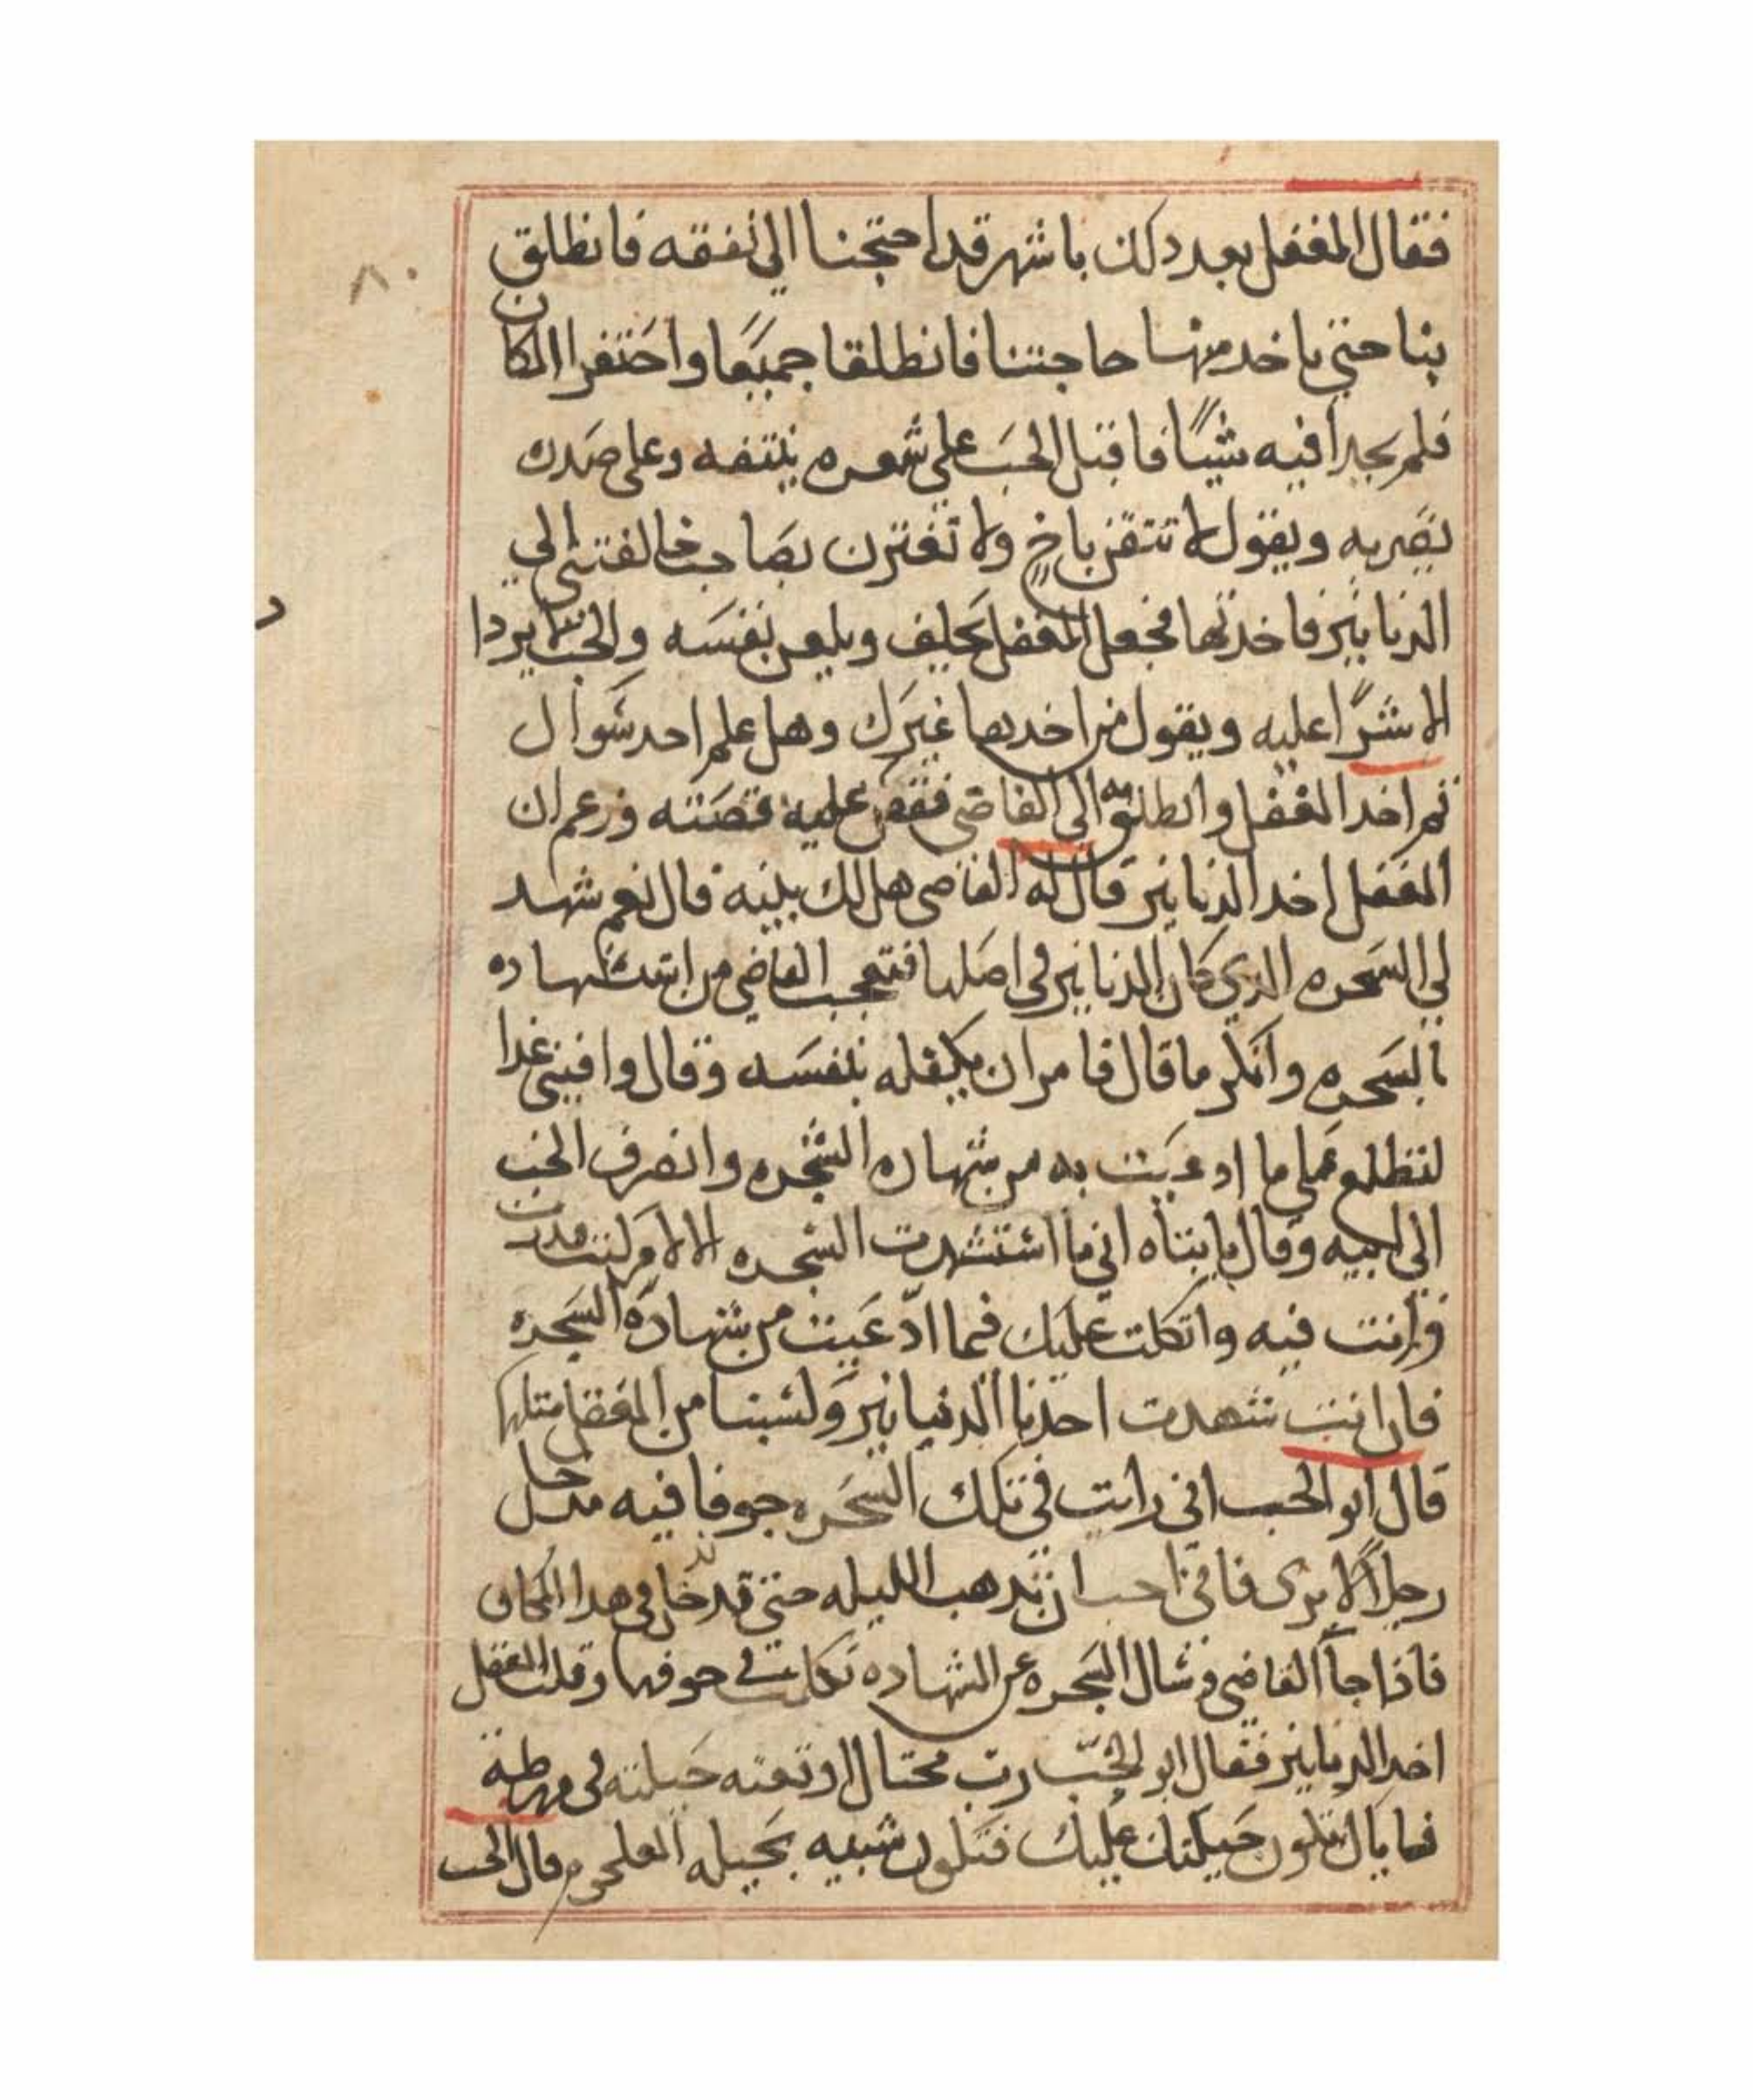 فقال المغفل بعد دلك باشهر قد احتجنا الي نفقه فانطلق
بنا حتي ناخد منها حاجتنا فانطلقا جميعا واحتفرا المكان
فلم يجدا فيه شيا فاقبل الخب علي شعره ينتفه وعلي صدره
يضربه ويقول لا تتقن باخ ولا تغترن بصاحب خالفتني الي
الدنانير فاخدتها فجعل المغفل يحلف ويلعن نفسه والخب لا يزداد
الا شرا عليه ويقول من اخدها غيرك وهل علم احد سوال
تم اخد المغفل وانطلق به الي القاضي فقص عليه قصته وزعم ان
المغفل اخد الدنانير قال له القاضي هل لك ببينه قال نعم شهد
لي السجره الدي كان الدنانير في اصلها فتعجب القاضي من استشهاده
بالسجره وانكر ما قال فامر ان يكفله بنفسه وقال وافيني غدا
لنطلع علي ما ادعيت به من شهاده الشجره وانصرف الخب
الي ابيه وقال يا ابتاه اني ما استشهدت الشجره الا لامر كنت قدرت
وانت فيه واتكلت عليك فيما ادعيت من شهاده السجره
فان انت شهدت احدنا الدنيانير ولسبنا من المغفل متلها
قال ابو الخب اني رايت في تلك السجره جوفا فيه مدخل
رجلا لا يرى فاني احب ان تدهب الليله حتي تدخل في هدا المكان
فاذا جا القاضي وسال السجره عن الشهاده تكلمت في جوفها وقلت المغفل
اخد الدنانير فقال ابو الخب رب محتال اوقعته حيلته في ورطة
فما بال تكون حيلتك عليك فتكون شبيه بحيله العلجوم قال الخب
٨٠